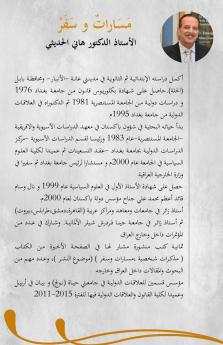 مَسَاراتٌ و سَفَرٌ
الأستاذ الدكتور هاني الحديثي
أكمل دراسته الإبتدائية ثم الثانوية في مدينتي عانة -الأنبار- ومحافظة بابل
(الحلة). حاصل على شهادة بكلوريوس قانون من جامعة بغداد 1976
و دراسات دولية من الجامعة المستنصرية 1981 ثم الدكتوراه في العلاقات
الدولية من جامعة بغداد 1995م
بدأ حياته البحثية في شؤون باكستان في معهد الدراسات الآسيوية والافريقية
-الجامعة المستنصرية-عام 1983 ورئيسا لقسم الدراسات الآسيوية -مركز
الدراسات الدولية جامعة بغداد -عقد التسعينات ثم عميدا لكلية العلوم
السياسية في الجامعة عام 2000م و مستشارا لرئيس جامعة بغداد ثم سفيرا في
وزارة الخارجية العراقية
حصل على شهادة الأستاذ الأول في العلوم السياسية عام 1999 و نال وسام
قائد أعظم محمد علي جناح مؤسس دولة باكستان لعام 2000م
أستاذ زائر في جامعات ومعاهد ومراكز عربية (القاهرة،دمشق،طرابلس،بيروت)
ثم أستاذ زائر في جامعة فردرش شيلر الألمانية. وشارك في عدد من
المؤتمرات داخل وخارج العراق.
ثمانية كتب منشورة مشار لها في الصفحة الأخيرة من الكتاب
( مذكرات شخصية ،مسارات وسفر ) (موضوع النشر )، وعدد مهم من
البحوث والمقالات داخل العراق وخارجه
مؤسس قسمين للعلاقات الدولية في جامعتي جيهان (نولج) و بيان في أربيل
وعميدا لكلية القانون والعلاقات الدولية فيها للفترة 2015-2011